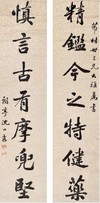 精鑑今之特健藥
慎言古有摩兜堅